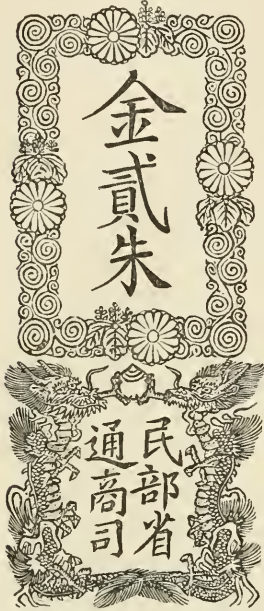 金貳朱
民部省
通商司